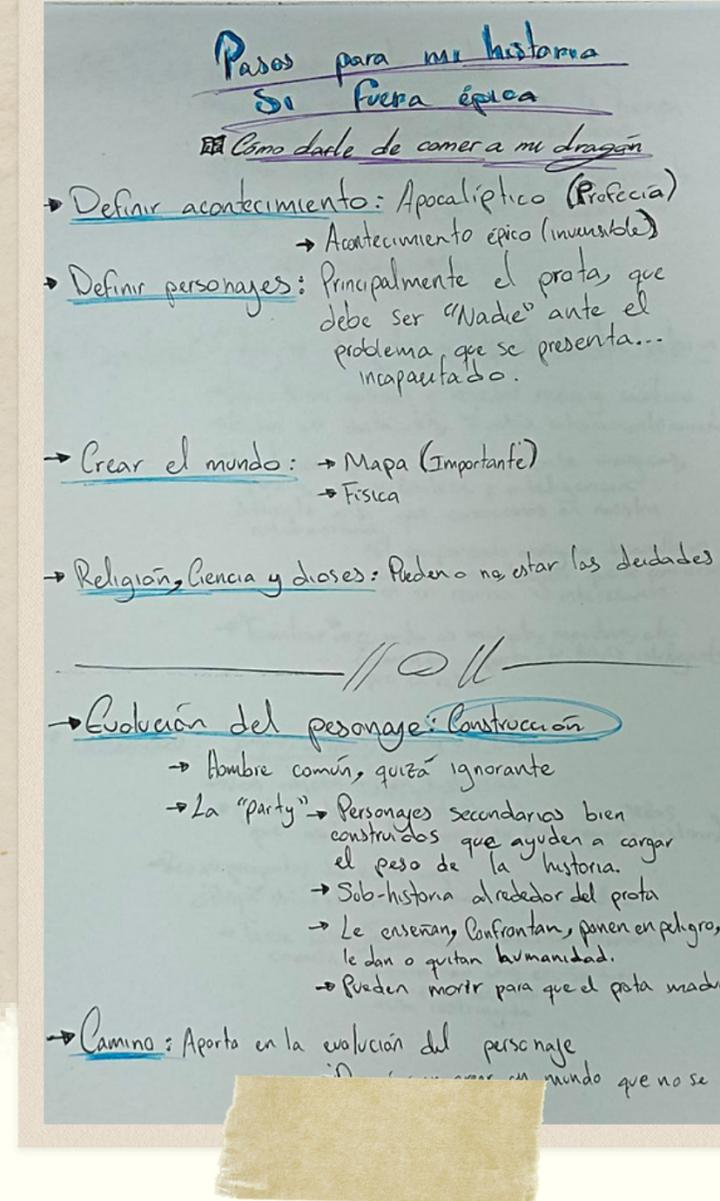 Pasos para mi historia
Si fuera épica
Cómo darle de comer a mi dragón
→ Definir acontecimiento: Apocalíptico (Profecía)
→ Acontecimiento épico (invensible)
→ Definir personajes: Principalmente el prota, que
debe ser "Nadie" ante el
problema que se presenta...
incapacitado.
→ Crear el mundo: → Mapa (Importante)
→ Física
→ Religión, Ciencia y dioses: Pueden o no estar las deidades
→ Evolución del pesonaje: Construcción
→ Hombre común, quizá ignorante
→ La "party" → Personajes secundarios bien
construidos que ayuden a cargar
el peso de la historia.
→ Sub-historia alrededor del prota
→ Le enseñan, Confrontan, ponen en peligro,
le dan o quitan humanidad.
→ Pueden morir para que el prota madu
→ Camino: Aporta en la evolución del personaje
mundo que no se